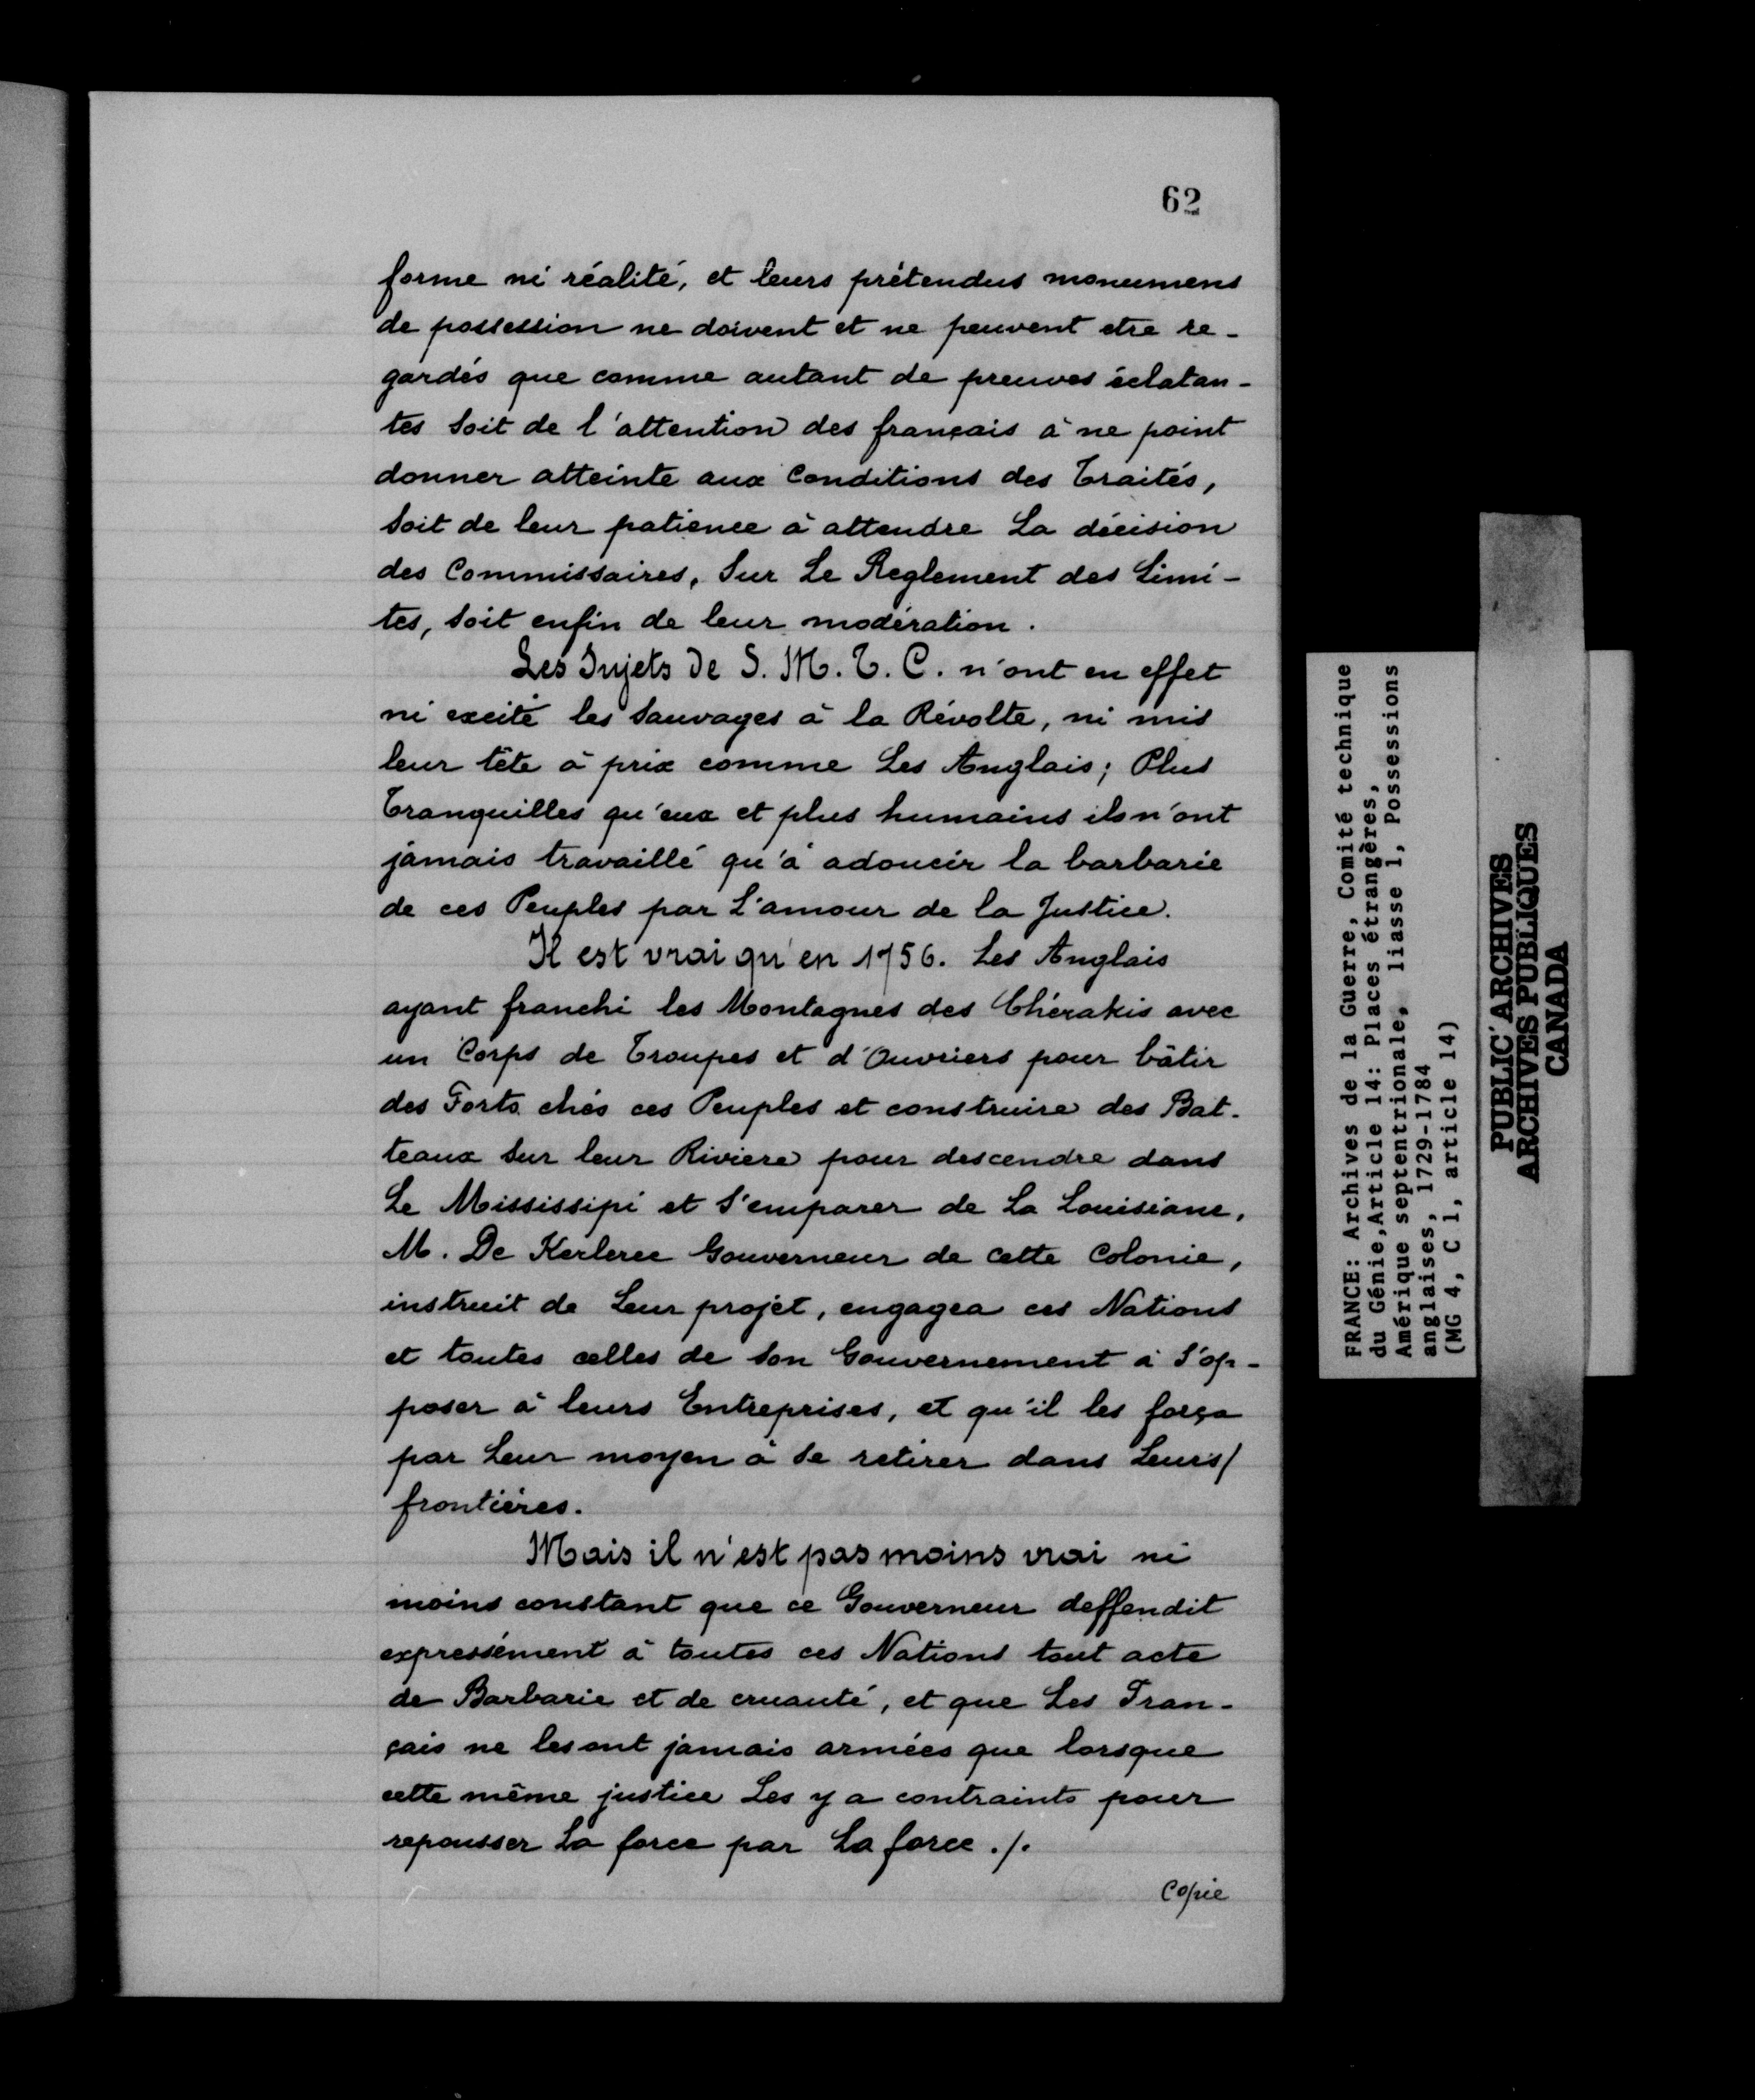 62
forme ni réalité, et leurs prétendus monumens
de possession ne doivent et ne peuvent etre re-
gardés que comme autant de preuves éclatan-
tes soit de l'attention des français à ne point
donner atteinte aux Conditions des Traités,
soit de leur patience à attendre La décision
des Commissaires, sur Le Reglement des Limi-
tes, soit enfin de leur modération.
Les Sujets de S. M. T. C. n'ont en effet
ni excité les sauvages à la Révolte, ni mis
leur tête à prix comme Les Anglais; Plus
Tranquilles qu'eux et plus humains ils n'ont
jamais travaillé qu'à adoucir la barbarie
de ces Peuples par L'amour de la Justice.
Il est vrai qu'en 1756. Les Anglais
ayant franchi les Montagnes des Chérakis avec
un Corps de Troupes et d'Ouvriers pour bâtir
des Forts chés ces Peuples et construire des Bat-
teaux sur leur Riviere pour descendre dans
Le Mississipi et s'emparer de La Louisiane,
M. De Kerlerec Gouverneur de cette Colonie,
instruit de Leur projet, engagea ces Nations
et toutes celles de son Gouvernement à s'op-
poser à leurs Entreprises, et qu'il les força
par Leur moyen à se retirer dans Leurs/
frontières.
Mais il n'est pas moins vrai ni
moins constant que ce Gouverneur deffendit
expressément à toutes ces Nations tout acte
de Barbarie et de cruauté, et que Les Fran-
çais ne les ont jamais armées que lorsque
cette même justice Les y a contraints pour
repousser La force par La force ./.
Copie
FRANCE: Archives de la Guerre, Comité technique
du Génie,Article 14: Places étrangères,
Amérique septentrionale, liasse 1, Possessions
anglaises, 1729-1784
(MG 4, C 1, article 14)
PUBLIC ARCHIVES
ARCHIVES PUBLIQUES
CANADA